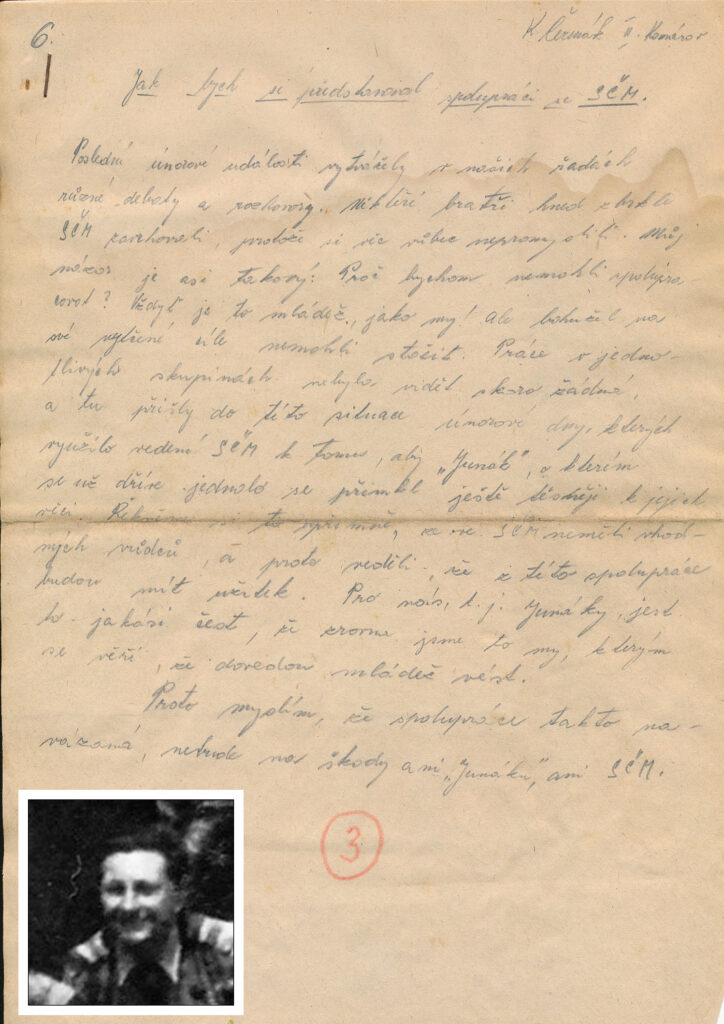 6.
K Čermák II. Komárov
Jak bych si představoval spolupráci se SČM.
Poslední únorové události vytvářely v našich řadách
různé debaty a rozhovory. Někteří bratři hned zkrátka
SČM zavrhovali, protože si věc vůbec nepromyslili. Můj
názor je asi takový: Proč bychom nemohli spolupra-
covat? Vždyť je to mládež, jako my! Ale bohužel na
své vytčené cíle nemohli stačit. Práce v jedno-
tlivých skupinách nebylo vidět skoro žádná,
a tu přišly do této situace únorové dny, kterých
využilo vedení SČM k tomu, aby „Junák", o kterém
se už dříve jednalo se přimkl ještě těsněji k jejich
věci. Řekněme si to upřímně, že ve SČM neměli vhod-
ných vůdců, a proto věděli, že z této spolupráce
budou mít užitek. Pro nás, t. j. Junáky, jest
to jakási čest, že zrovna jsme to my, kterým
se věří, že dovedou mládež vést.
Proto myslím, že spolupráce takto na-
vázaná, nebude na škody ani „Junáku", ani SČM.
3